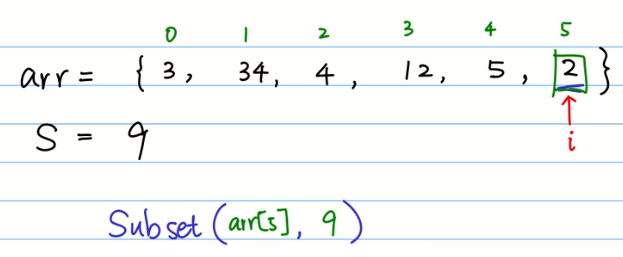 0 1 2 3 4 5
arr = { 3, 34, 4, 12, 5, 2 }
S = 9
i
Subset (arr[5], 9)